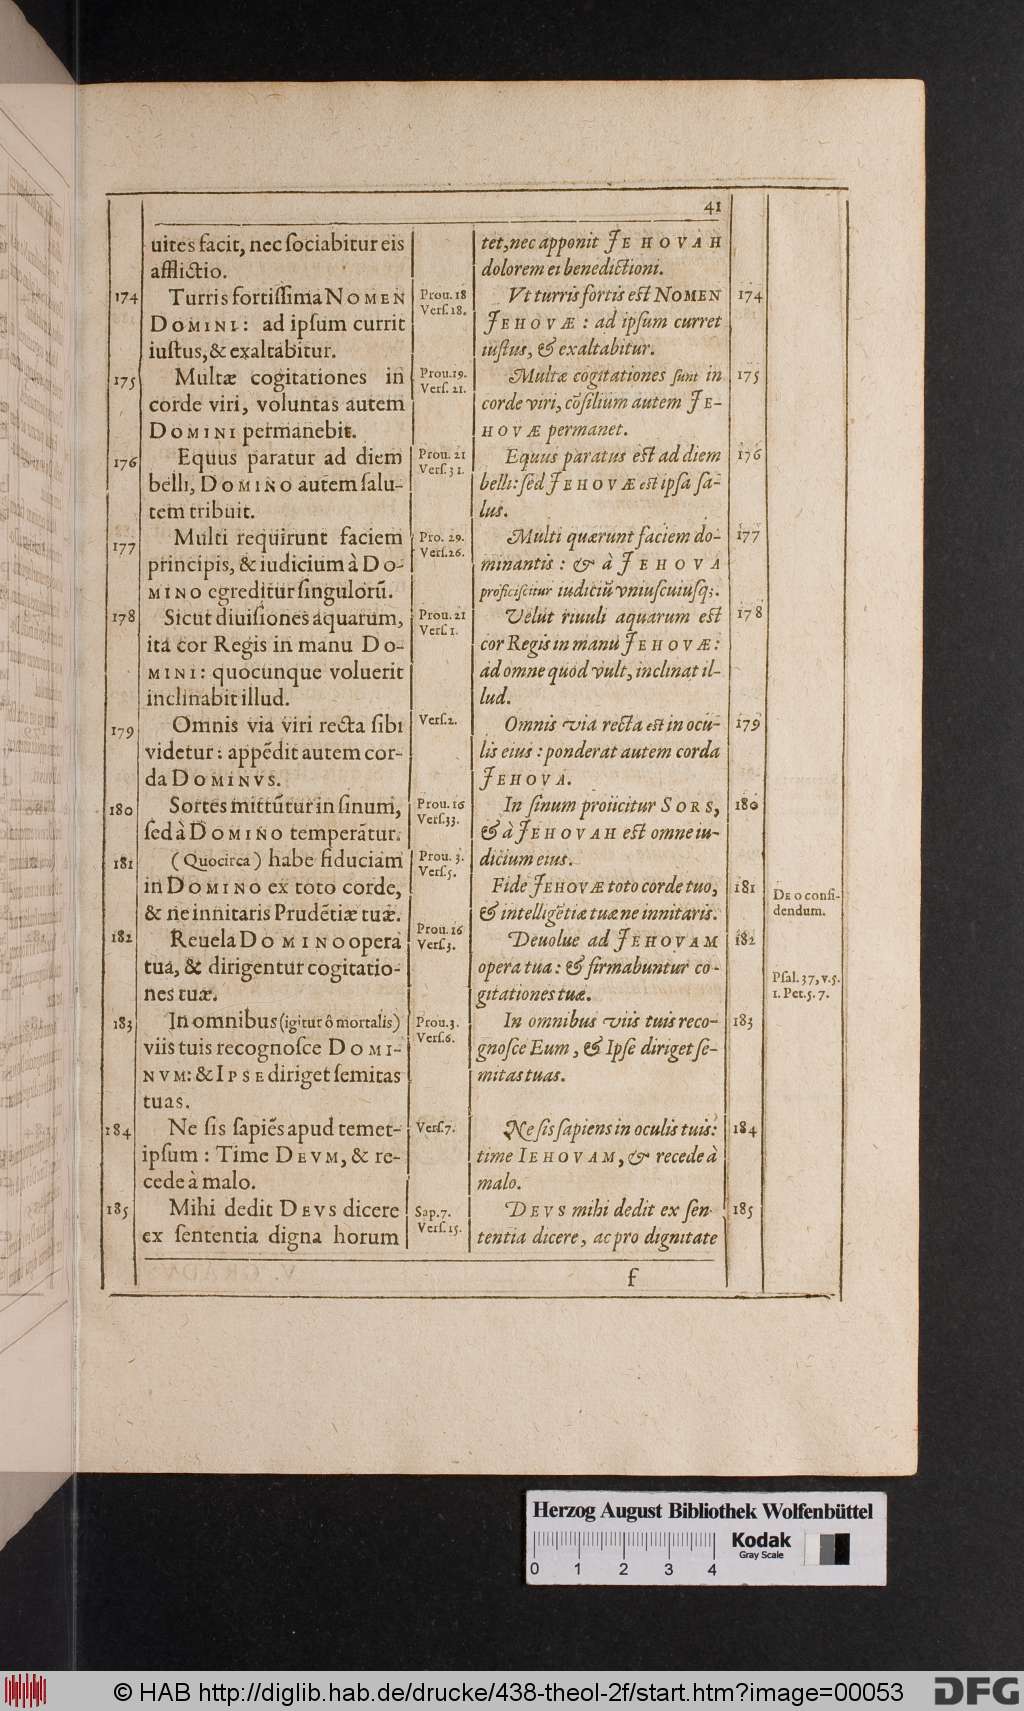 41
uites facit, nec ſociabitur eis
afflictio.
174
Turris fortiſſima NOMEN
DOMINI: ad ipſum currit
iuſtus, & exaltabitur.
175
Multæ cogitationes in
corde viri, voluntas autem
DOMINI permanebit.
176
Equus paratur ad diem
belli, DOMINO autem ſalu-
tem tribuit.
177
Multi requirunt faciem
principis, & iudicium à DO-
MINO egreditur ſingulorũ.
178
Sicut diuiſiones aquarum,
ita cor Regis in manu DO-
MINI: quocunque voluerit
inclinabit illud.
179
Omnis via viri recta ſibi
videtur: appẽdit autem cor-
da DOMINVS.
180
Sortes mittũtur in ſinum,
ſed à DOMINO temperãtur.
181
(Quocirca) habe fiduciam
in DOMINO ex toto corde,
& ne innitaris Prudẽtiæ tuæ.
182
Reuela DOMINO opera
tua, & dirigentur cogitatio-
nes tuæ.
183
In omnibus (igitur ô mortalis)
viis tuis recognoſce DOMI-
NVM: & IPSE diriget ſemitas
tuas.
184
Ne ſis ſapiẽs apud temet-
ipſum: Time DEVM, & re-
cede à malo.
185
Mihi dedit DEVS dicere
ex ſententia digna horum
Prou. 18
Verſ. 18.
Prou. 19.
Verſ. 21.
Prou. 21
Verſ. 31.
Pro. 29.
Verſ. 26.
Prou. 21
Verſ 1.
Verſ 2.
Prou. 16
Verſ. 33.
Prou. 3.
Verſ. 5.
Prou. 16
Verſ. 3.
Prou. 3.
Verſ. 6.
Verſ. 7.
Sap. 7.
Verſ. 15.
tet, nec apponit JEHOVAH
dolorem ei benedictioni.
Vt turris fortis eſt NOMEN
JEHOVÆ: ad ipſum curret
iuſtus, & exaltabitur.
174
Multæ cogitationes ſunt in
corde viri, cõſilium autem JE-
HOVÆ permanet.
175
Equus paratus eſt ad diem
belli: ſed JEHOVÆ eſt ipſa ſa-
lus.
176
Multi quærunt faciem do-
minantis: & à JEHOVA
proficiſcitur iudiciũ vniuſcuiuſq;.
177
Velut riuuli aquarum eſt
cor Regis in manu JEHOVÆ:
ad omne quod vult, inclinat il-
lud.
178
Omnis via recta eſt in ocu-
lis eius: ponderat autem corda
JEHOVA.
179
In ſinum proiicitur SORS,
& à JEHOVAH eſt omne iu-
dicium eius.
180
Fide JEHOVÆ toto corde tuo,
& intelligẽtiæ tuæ ne innitaris.
181
Deuolue ad JEHOVAM
opera tua: & firmabuntur co-
gitationes tuæ.
182
In omnibus viis tuis reco-
gnoſce Eum, & Ipſe diriget ſe-
mitas tuas.
183
Ne ſis ſapiens in oculis tuis:
time IEHOVAM, & recede à
malo.
184
DEVS mihi dedit ex ſen-
tentia dicere, ac pro dignitate
185
DE O confi-
dendum.
Pſal. 37, v. 5.
1. Pet. 5. 7.
f
Herzog August Bibliothek Wolfenbüttel
0 1 2 3 4
Kodak
Gray Scale
© HAB http://diglib.hab.de/drucke/438-theol-2f/start.htm?image=00053
DFG